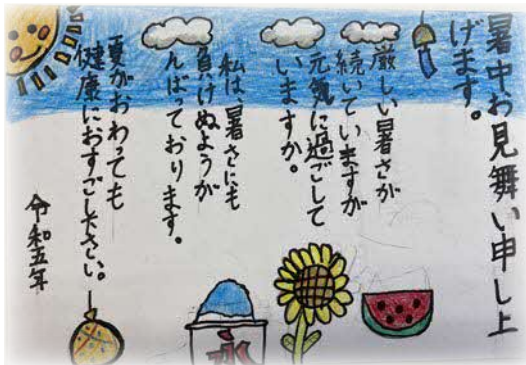 暑中お見舞い申し上
げます。
厳しい暑さが
続いていますが
元気に過ごして
いますか。
私は、暑さにも
負けぬようが
んばっております。
夏がおわっても
健康におすごし下さい。
令和五年
氷